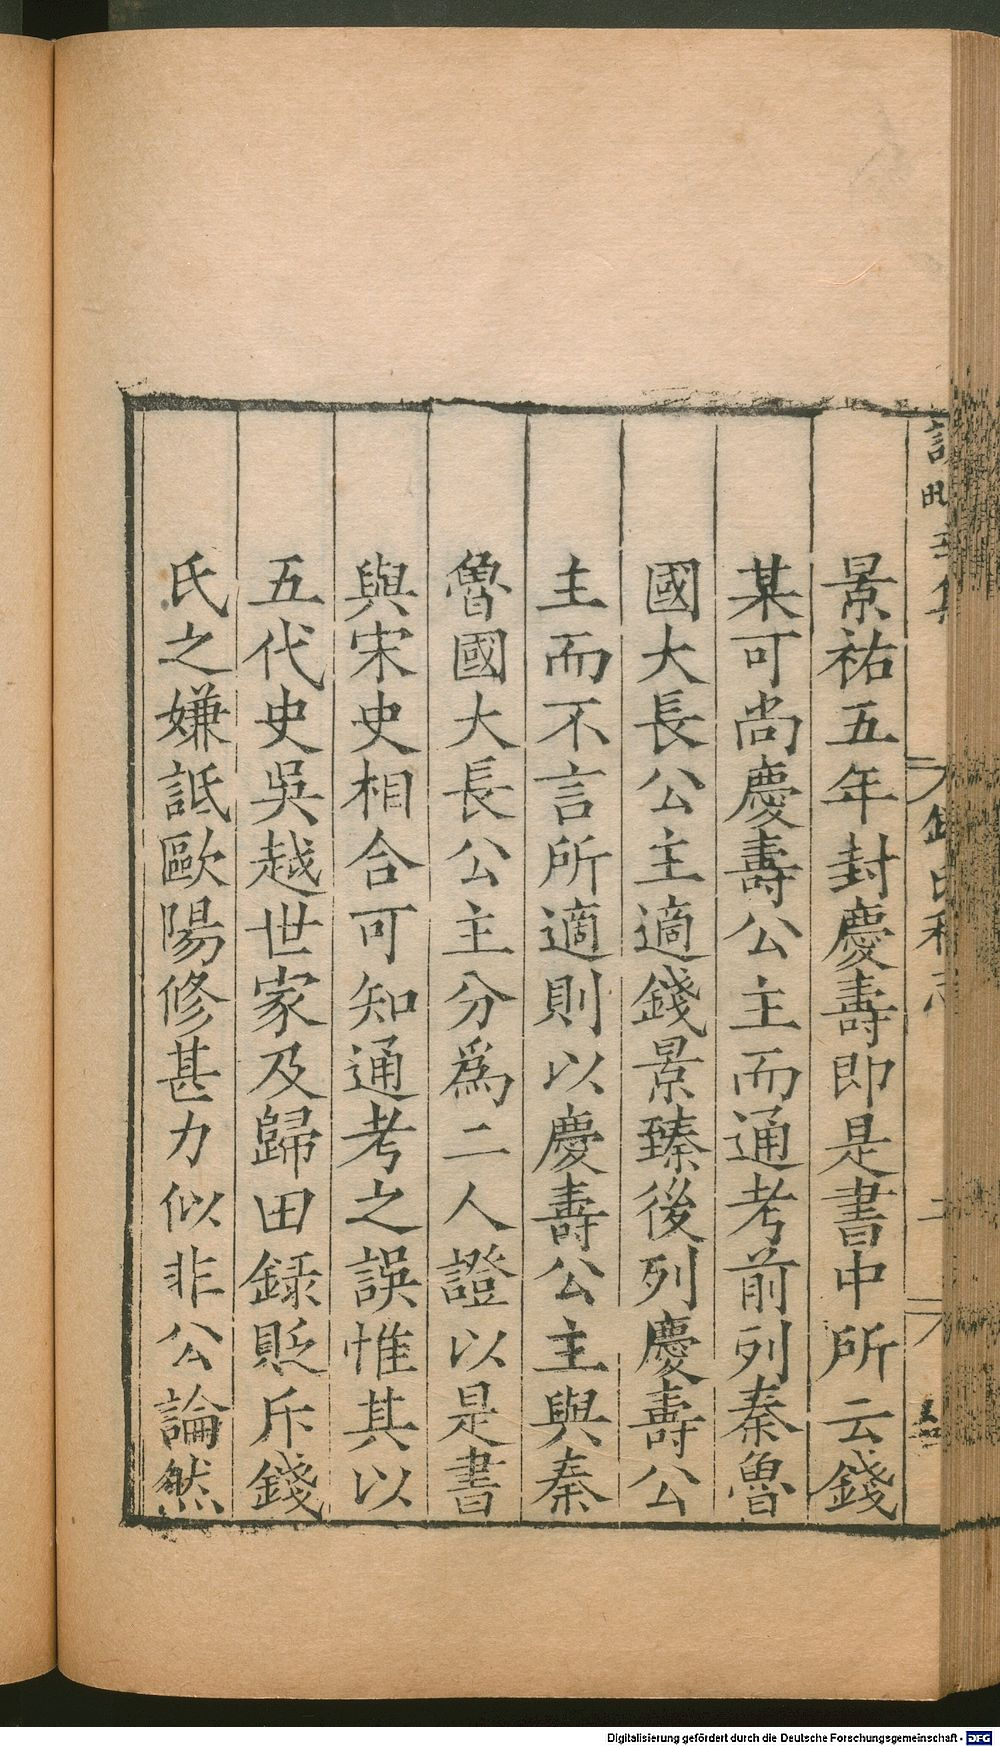 景祐五年封慶壽即是書中所云錢
某可尚慶壽公主而通考前列秦魯
國大長公主適錢景臻後列慶壽公
主而不言所適則以慶壽公主與秦
魯國大長公主分爲二人證以是書
與宋史相合可知通考之誤惟其以
五代史吳越世家及歸田録貶斥錢
氏之嫌詆歐陽修甚力似非公論然
Digitalisierung gefördert durch die Deutsche Forschungsgemeinschaft - DFG